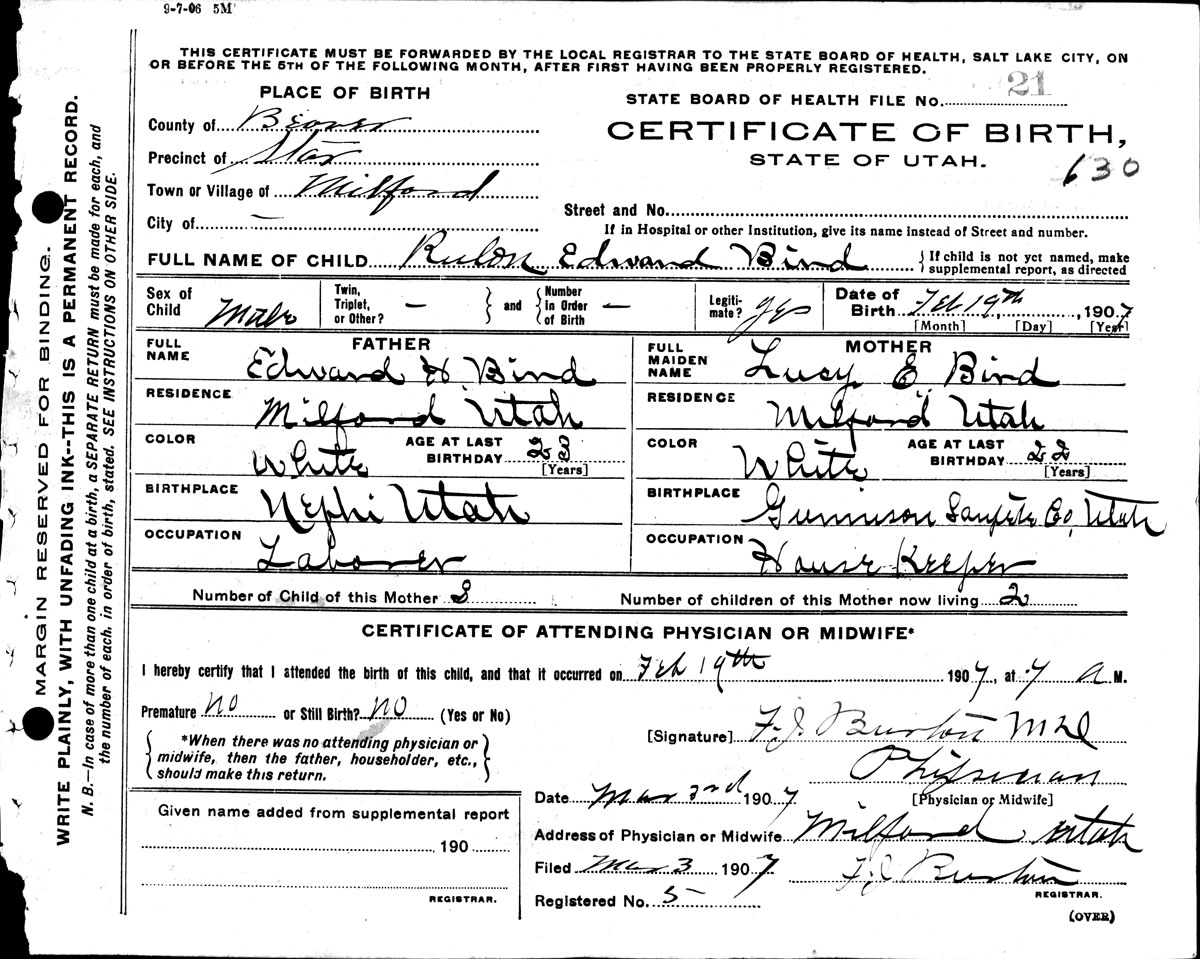 9-7-06 5M
THIS CERTIFICATE MUST BE FORWARDED BY THE LOCAL REGISTRAR TO THE STATE BOARD OF HEALTH, SALT LAKE CITY, ON
OR BEFORE THE 5TH OF THE FOLLOWING MONTH, AFTER FIRST HAVING BEEN PROPERLY REGISTERED.
PLACE OF BIRTH
County of Beaver
Precinct of Star
Town or Village of Milford
City of —
STATE BOARD OF HEALTH FILE No. 21
CERTIFICATE OF BIRTH,
STATE OF UTAH.
630
Street and No.
If in Hospital or other Institution, give its name instead of Street and number.
FULL NAME OF CHILD Rulon Edward Bird { If child is not yet named, make
supplemental report, as directed
Sex of Child Male
Twin, Triplet, or Other? — } and { Number in Order of Birth —
Legiti-mate? Yes
Date of Birth Feb 19th, 1907
[Month] [Day] [Year]
FATHER
FULL NAME Edward H. Bird
RESIDENCE Milford Utah
COLOR White AGE AT LAST BIRTHDAY 23
[Years]
BIRTHPLACE Nephi Utah
OCCUPATION Laborer
MOTHER
FULL MAIDEN NAME Lucy E. Bird
RESIDENCE Milford Utah
COLOR White AGE AT LAST BIRTHDAY 22
[Years]
BIRTHPLACE Gunnison Sanpete Co, Utah
OCCUPATION House Keeper
Number of Child of this Mother 3 Number of children of this Mother now living 2
CERTIFICATE OF ATTENDING PHYSICIAN OR MIDWIFE*
I hereby certify that I attended the birth of this child, and that it occurred on Feb 19th 1907, at 7 a M.
Premature NO or Still Birth? NO (Yes or No)
{ *When there was no attending physician or
midwife, then the father, householder, etc.,
should make this return. }
[Signature] F. J. Burton MD
Physician
[Physician or Midwife]
Date Mar 2nd 1907
Address of Physician or Midwife Milford Utah
Filed Mar 3 1907 F. J. Burton
REGISTRAR.
Registered No. 5
(OVER)
Given name added from supplemental report
190
REGISTRAR.
MARGIN RESERVED FOR BINDING.
WRITE PLAINLY, WITH UNFADING INK--THIS IS A PERMANENT RECORD.
N. B.—In case of more than one child at a birth, a SEPARATE RETURN must be made for each, and
the number of each, in order of birth, stated. SEE INSTRUCTIONS ON OTHER SIDE.